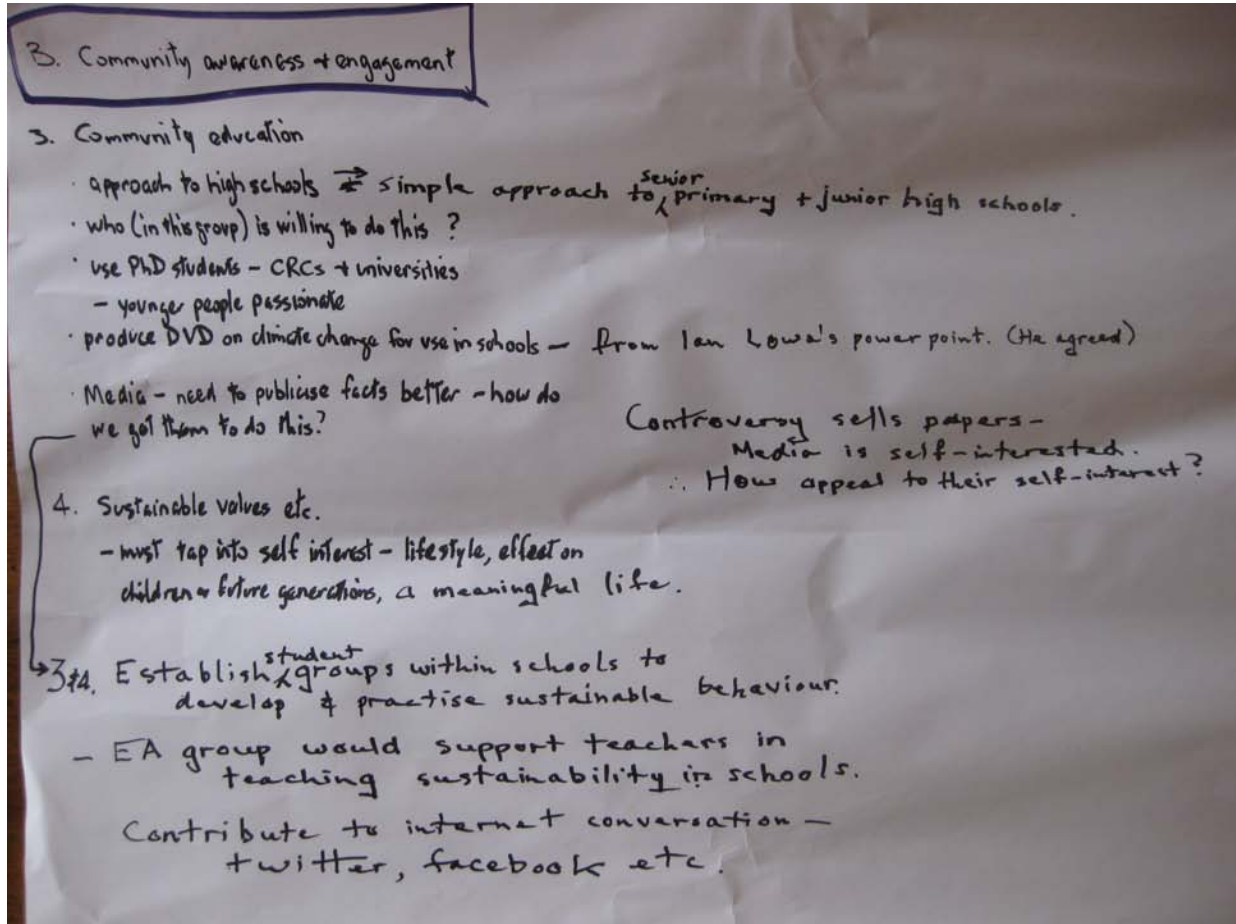 B. Community awareness + engagement
3. Community education
· approach to high schools → simple approach to senior primary + junior high schools.
· who (in this group) is willing to do this ?
· use PhD students – CRCs + universities
– younger people passionate
· produce DVD on climate change for use in schools – from Ian Lowe's power point. (He agreed)
· Media – need to publicise facts better – how do
we get them to do this?
Controversy sells papers –
Media is self-interested.
∴ How appeal to their self-interest?
4. Sustainable values etc.
– must tap into self interest – lifestyle, effect on
children + future generations, a meaningful life.
3+4. Establish student groups within schools to
develop & practise sustainable behaviour.
– EA group would support teachers in
teaching sustainability in schools.
Contribute to internet conversation –
twitter, facebook etc.